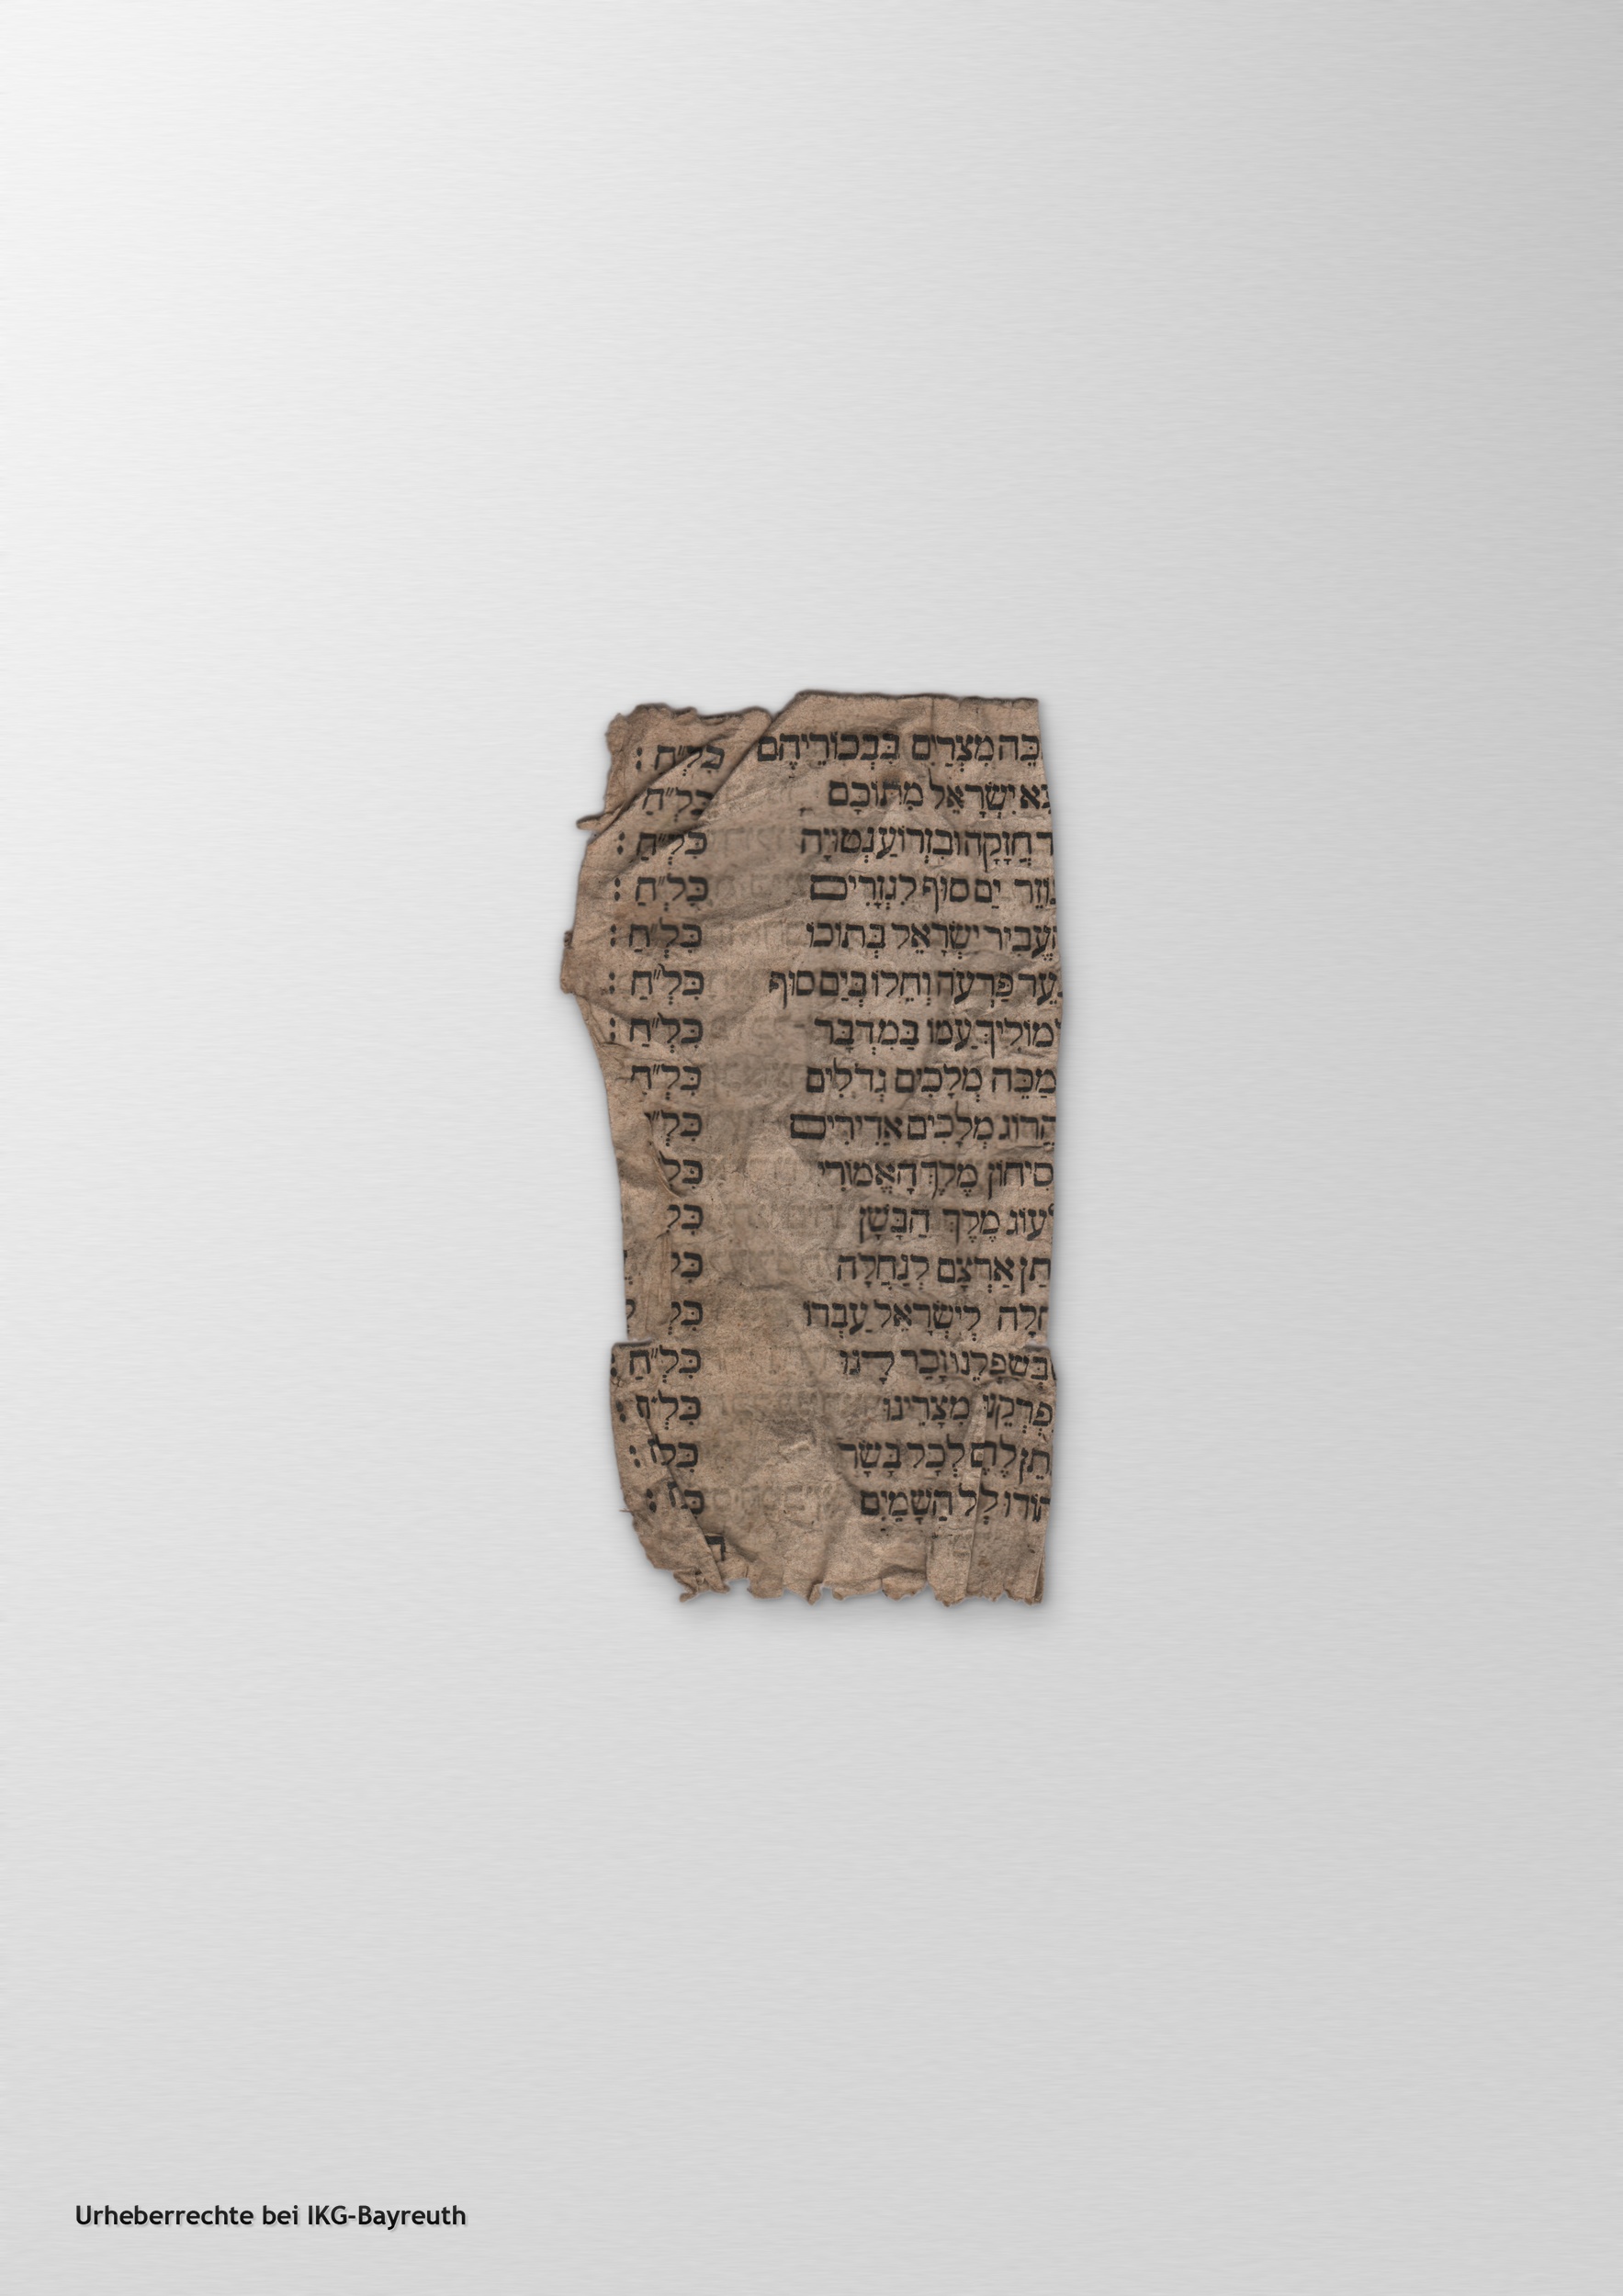 כֵּה מִצְרַיִם בִּבְכוֹרֵיהֶם כִּלְ״חַ :
צֵא יִשְׂרָאֵל מִתּוֹכָם כִּלְ״חַ
ד חֲזָקָה וּבִזְרוֹעַ נְטוּיָה כִּלְ״חַ :
גוֹזֵר יַם סוּף לִגְזָרִים כִּלְ״חַ :
הֶעֱבִיר יִשְׂרָאֵל בְּתוֹכוֹ כִּלְ״חַ :
נִעֵר פַּרְעֹה וְחֵילוֹ בְיַם סוּף כִּלְ״חַ :
מוֹלִיךְ עַמּוֹ בַּמִּדְבָּר כִּלְ״חַ :
מַכֵּה מְלָכִים גְּדֹלִים כִּלְ״חַ
הֲרוֹג מְלָכִים אַדִּירִים כִּלְ״
סִיחוֹן מֶלֶךְ הָאֱמוֹרִי כִּלְ
עוֹג מֶלֶךְ הַבָּשָׁן כִּלְ
תַן אַרְצָם לְנַחֲלָה כִּלְ
חֲלָה לְיִשְׂרָאֵל עַבְדּוֹ כִּלְ
שֶׁבְּשִׁפְלֵנוּ זָכַר לָנוּ כִּלְ״חַ :
פְרְקֵנוּ מִצָּרֵינוּ כִּלְ״חַ :
תֵן לֶחֶם לְכָל בָּשָׂר כִּלְ :
הוֹדוּ לְל הַשָּׁמַיִם :
Urheberrechte bei IKG-Bayreuth